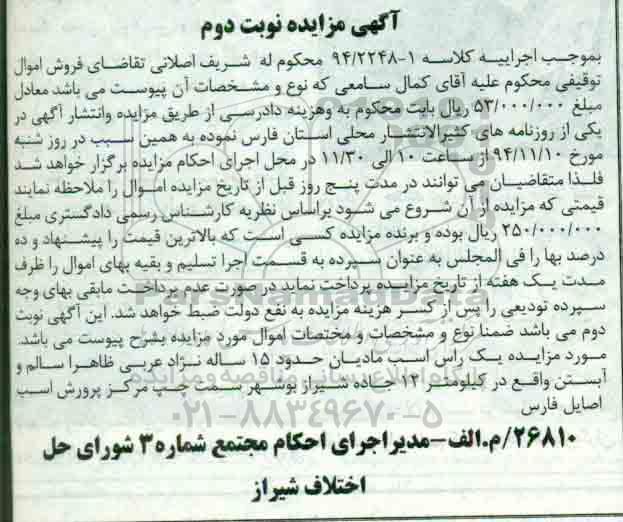 آگهی مزایده نوبت دوم
بموجب اجراییه کلاسه ۱-۹۴/۲۲۴۸ محکوم له شریف اصلانی تقاضای فروش اموال
توقیفی محکوم علیه آقای کمال سامعی که نوع و مشخصات آن پیوست می باشد معادل
مبلغ ۵۳/۰۰۰/۰۰۰ ریال بابت محکوم به وهزینه دادرسی از طریق مزایده وانتشار آگهی در
یکی از روزنامه های کثیرالانتشار محلی استان فارس نموده به همین سبب در روز شنبه
مورخ ۹۴/۱۱/۱۰ از ساعت ۱۰ الی ۱۱/۳۰ در محل اجرای احکام مزایده برگزار خواهد شد
فلذا متقاضیان می توانند در مدت پنج روز قبل از تاریخ مزایده اموال را ملاحظه نمایند
قیمتی که مزایده از آن شروع می شود براساس نظریه کارشناس رسمی دادگستری مبلغ
۲۵۰/۰۰۰/۰۰۰ ریال بوده و برنده مزایده کسی است که بالاترین قیمت را پیشنهاد و ده
درصد بها را فی المجلس به عنوان سپرده به قسمت اجرا تسلیم و بقیه بهای اموال را ظرف
مدت یک هفته از تاریخ مزایده پرداخت نماید در صورت عدم پرداخت مابقی بهای وجه
سپرده تودیعی را پس از کسر هزینه مزایده به نفع دولت ضبط خواهد شد. این آگهی نوبت
دوم می باشد ضمنا نوع و مشخصات و مختصات اموال مورد مزایده بشرح پیوست می باشد.
مورد مزایده یک راس اسب مادیان حدود ۱۵ ساله نژاد عربی ظاهرا سالم و
آبستن واقع در کیلومتر ۱۲ جاده شیراز بوشهر سمت چپ مرکز پرورش اسب
اصایل فارس
۲۶۸۱۰/م.الف-مدیراجرای احکام مجتمع شماره ۳ شورای حل
اختلاف شیراز
ParsNamadData
پایگاه اطلاع رسانی مناقصه و مزایده
۰۲۱-۸۸۳۴۹۶۷۰-۵